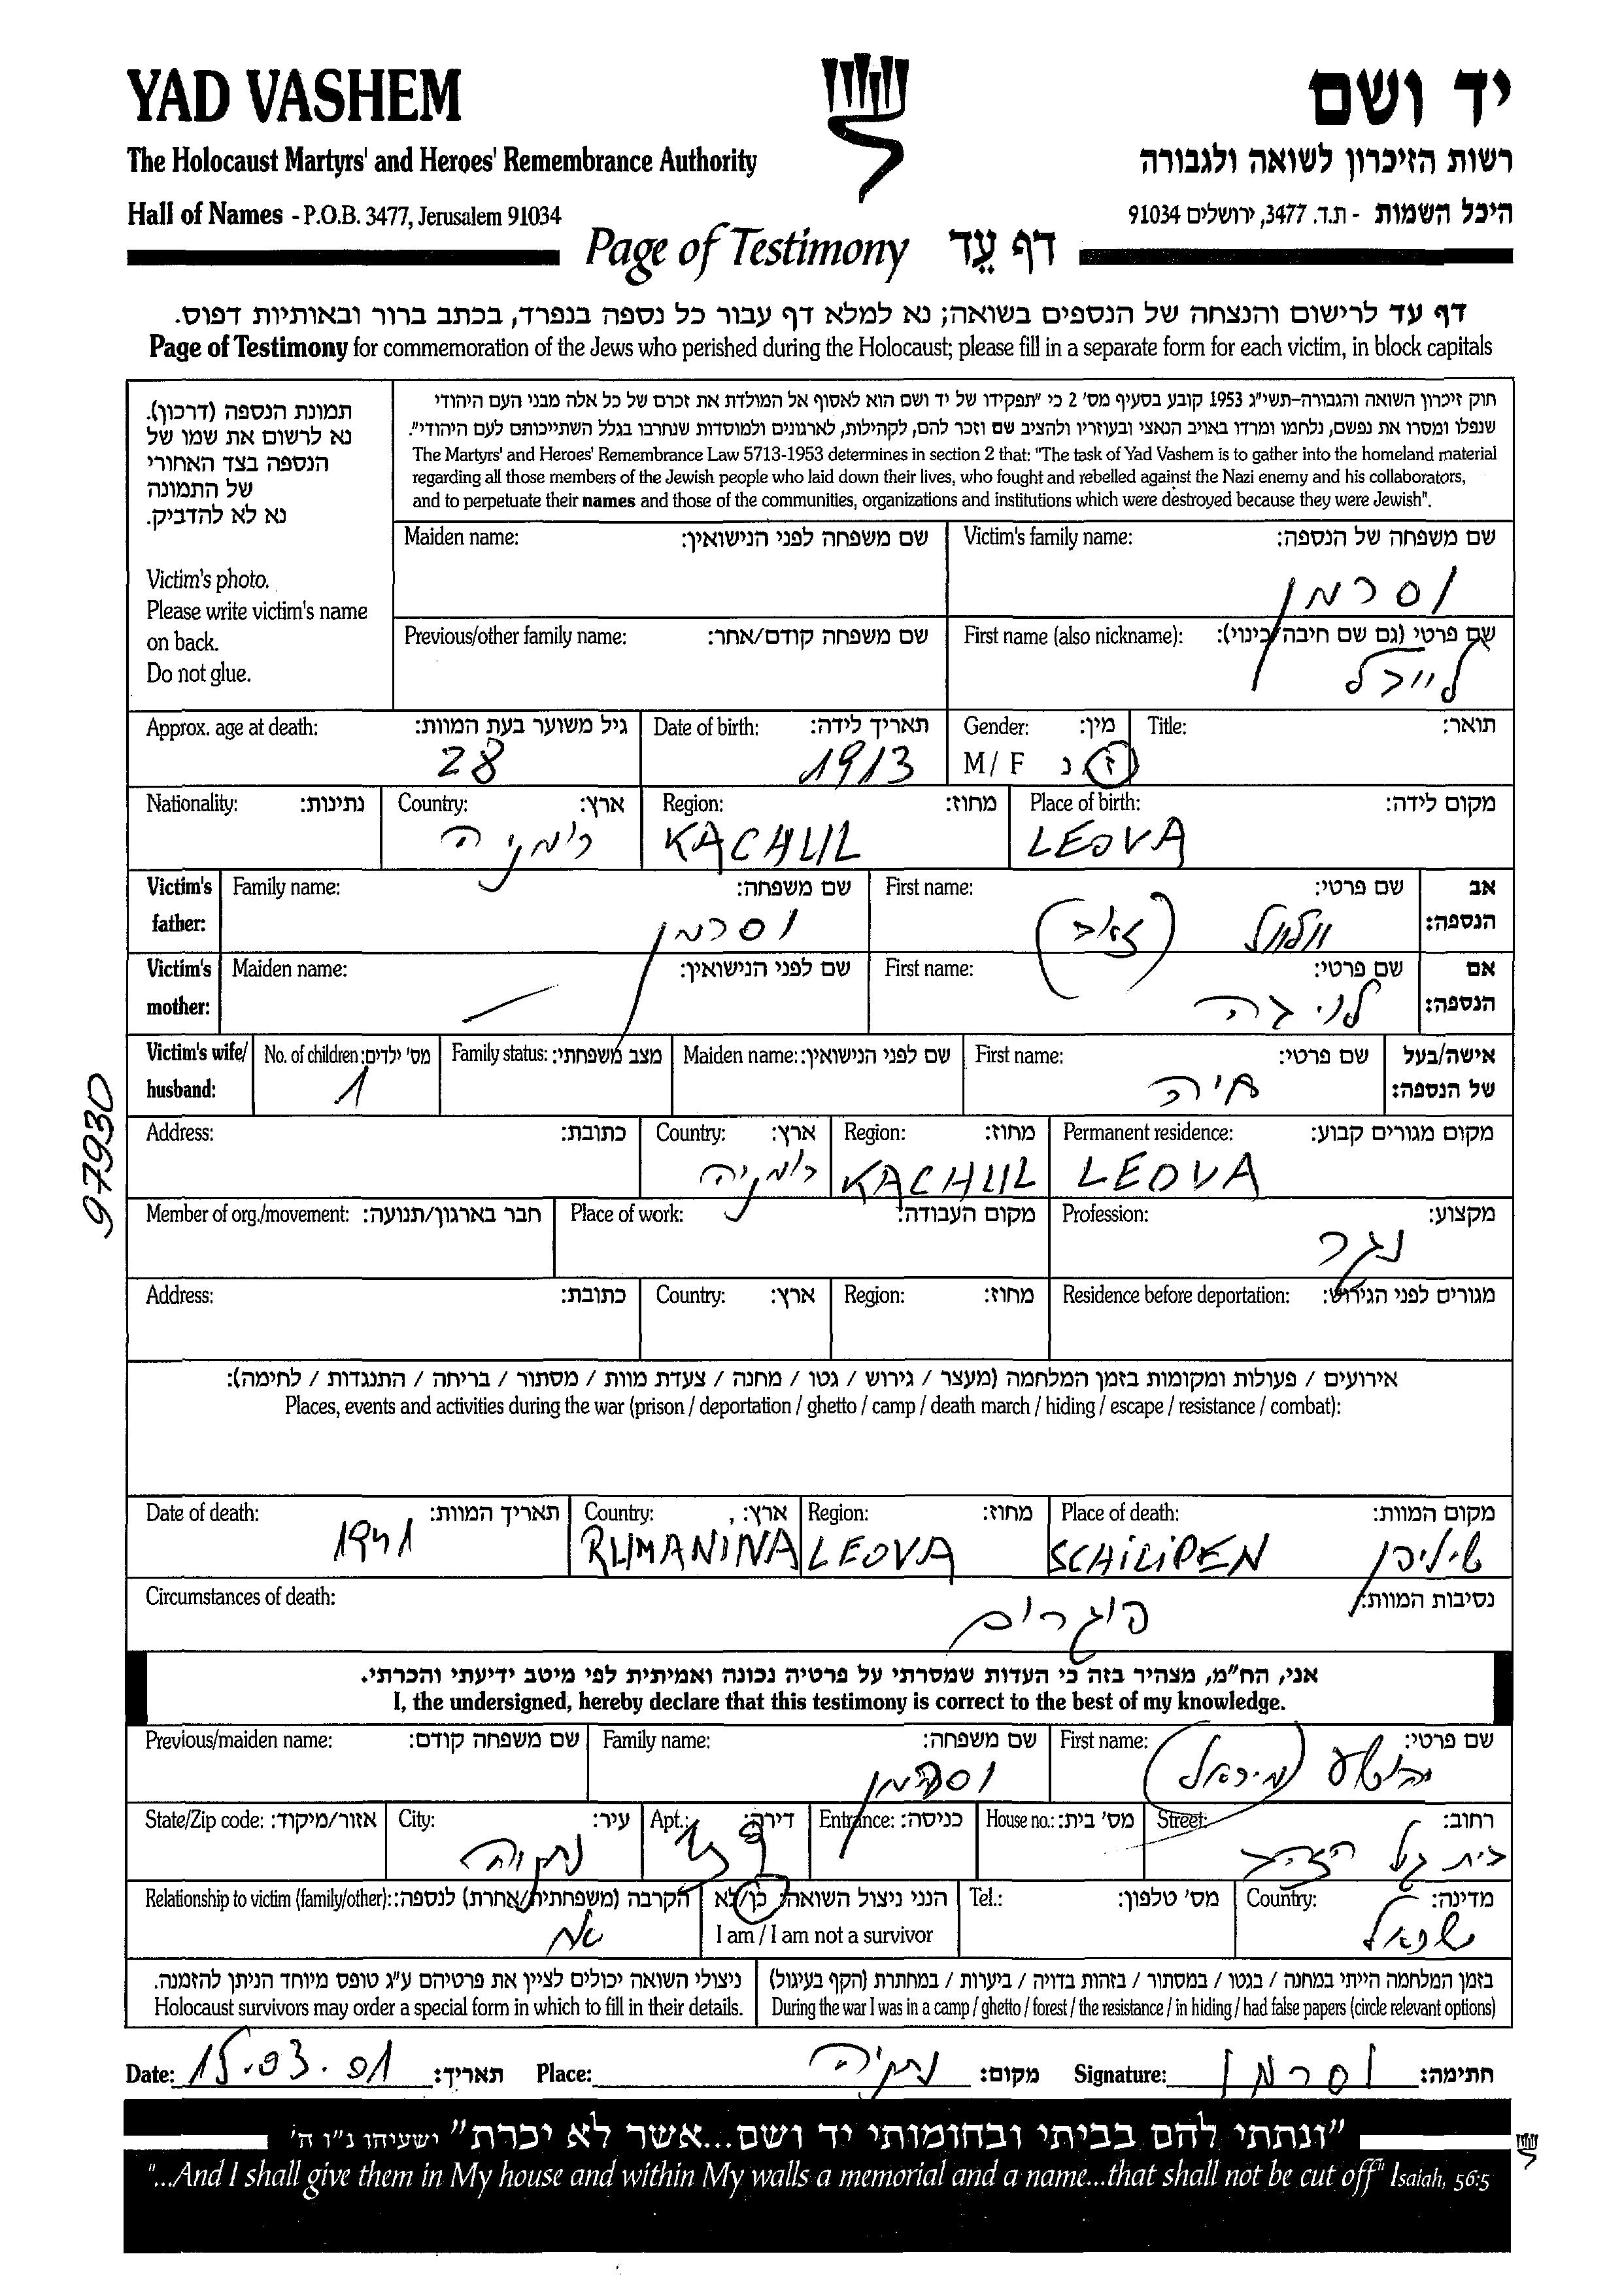 YAD VASHEM
יד ושם
The Holocaust Martyrs' and Heroes' Remembrance Authority
רשות הזיכרון לשואה ולגבורה
Hall of Names - P.O.B. 3477, Jerusalem 91034
היכל השמות - ת.ד. 3477, ירושלים 91034
Page of Testimony דף עֵד
דף עד לרישום והנצחה של הנספים בשואה; נא למלא דף עבור כל נספה בנפרד, בכתב ברור ובאותיות דפוס.
Page of Testimony for commemoration of the Jews who perished during the Holocaust; please fill in a separate form for each victim, in block capitals
תמונת הנספה (דרכון).
נא לרשום את שמו של
הנספה בצד האחורי
של התמונה
נא לא להדביק.
Victim's photo.
Please write victim's name
on back.
Do not glue.
חוק זיכרון השואה והגבורה-תשי"ג 1953 קובע בסעיף מס' 2 כי "תפקידו של יד ושם הוא לאסוף אל המולדת את זכרם של כל אלה מבני העם היהודי
שנפלו ומסרו את נפשם, נלחמו ומרדו באויב הנאצי ובעוזריו ולהציב שם וזכר להם, לקהילות, לארגונים ולמוסדות שנחרבו בגלל השתייכותם לעם היהודי".
The Martyrs' and Heroes' Remembrance Law 5713-1953 determines in section 2 that: "The task of Yad Vashem is to gather into the homeland material
regarding all those members of the Jewish people who laid down their lives, who fought and rebelled against the Nazi enemy and his collaborators,
and to perpetuate their names and those of the communities, organizations and institutions which were destroyed because they were Jewish".
Maiden name: שם משפחה לפני הנישואין:
Victim's family name: שם משפחה של הנספה:
וסרמן
Previous/other family name: שם משפחה קודם/אחר:
First name (also nickname): שם פרטי (גם שם חיבה/כינוי):
לייבל
Approx. age at death: גיל משוער בעת המוות:
28
Date of birth: תאריך לידה:
1913
Gender: מין:
M / F ז נ
Title: תואר:
Nationality: נתינות:
Country: ארץ:
רומניה
Region: מחוז:
KACHUL
Place of birth: מקום לידה:
LEOVA
Victim's father: אב הנספה:
Family name: שם משפחה:
וסרמן
First name: שם פרטי:
וולוול (זאב)
Victim's mother: אם הנספה:
Maiden name: שם לפני הנישואין:
First name: שם פרטי:
Victim's wife/husband: אישה/בעל של הנספה:
No. of children: מס' ילדים:
1
Family status: מצב משפחתי:
Maiden name: שם לפני הנישואין:
First name: שם פרטי:
חיה
97930
Address: כתובת:
Country: ארץ:
רומניה
Region: מחוז:
KACHUL
Permanent residence: מקום מגורים קבוע:
LEOVA
Member of org./movement: חבר בארגון/תנועה:
Place of work: מקום העבודה:
Profession: מקצוע:
נגר
Address: כתובת:
Country: ארץ:
Region: מחוז:
Residence before deportation: מגורים לפני הגירוש:
אירועים / פעולות ומקומות בזמן המלחמה (מעצר / גירוש / גטו / מחנה / צעדת מוות / מסתור / בריחה / התנגדות / לחימה):
Places, events and activities during the war (prison / deportation / ghetto / camp / death march / hiding / escape / resistance / combat):
Date of death: תאריך המוות:
1941
Country: ארץ:
RUMANINA
Region: מחוז:
LEOVA
Place of death: מקום המוות:
SCHILIPEN שיליפן
Circumstances of death: נסיבות המוות:
פוגרום
אני, הח"מ, מצהיר בזה כי העדות שמסרתי על פרטיה נכונה ואמיתית לפי מיטב ידיעתי והכרתי.
I, the undersigned, hereby declare that this testimony is correct to the best of my knowledge.
Previous/maiden name: שם משפחה קודם:
Family name: שם משפחה:
וסרמן
First name: שם פרטי:
יהושע
State/Zip code: אזור/מיקוד:
City: עיר:
נתניה
Apt.: דירה:
Entrance: כניסה:
House no.: מס' בית:
Street: רחוב:
בית גיל הזהב
Relationship to victim (family/other): הקרבה (משפחתית/אחרת) לנספה:
אח
הנני ניצול השואה: כן/לא
I am / I am not a survivor
Tel.: מס' טלפון:
Country: מדינה:
ישראל
ניצולי השואה יכולים לציין את פרטיהם ע"ג טופס מיוחד הניתן להזמנה.
Holocaust survivors may order a special form in which to fill in their details.
בזמן המלחמה הייתי במחנה / בגטו / במסתור / בזהות בדויה / ביערות / במחתרת (הקף בעיגול)
During the war I was in a camp / ghetto / forest / the resistance / in hiding / had false papers (circle relevant options)
Date: 15.03.01 תאריך:
Place: נתניה מקום:
Signature: וסרמן חתימה:
"ונתתי להם בביתי ובחומותי יד ושם...אשר לא יכרת" ישעיהו נ"ו ה'
"...And I shall give them in My house and within My walls a memorial and a name...that shall not be cut off" Isaiah, 56:5